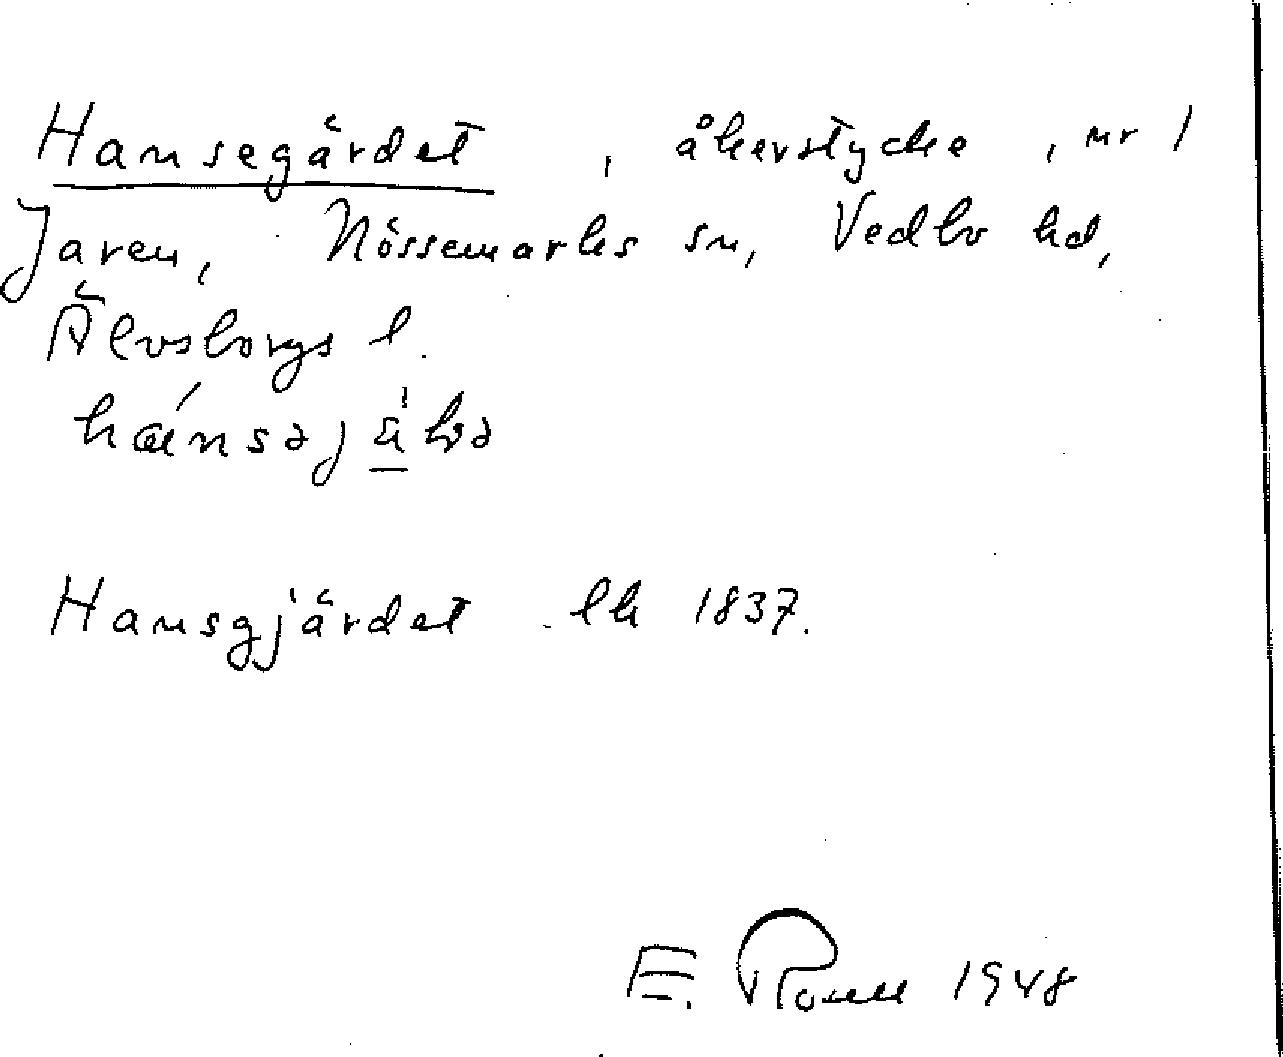 Hansegärdet, åkerstycke, nr 1
Jaren, Nössemarks sn, Vedbo hd,
Älvsborgs l.
Hansgjärdet lh 1837.
E. Rosell 1948